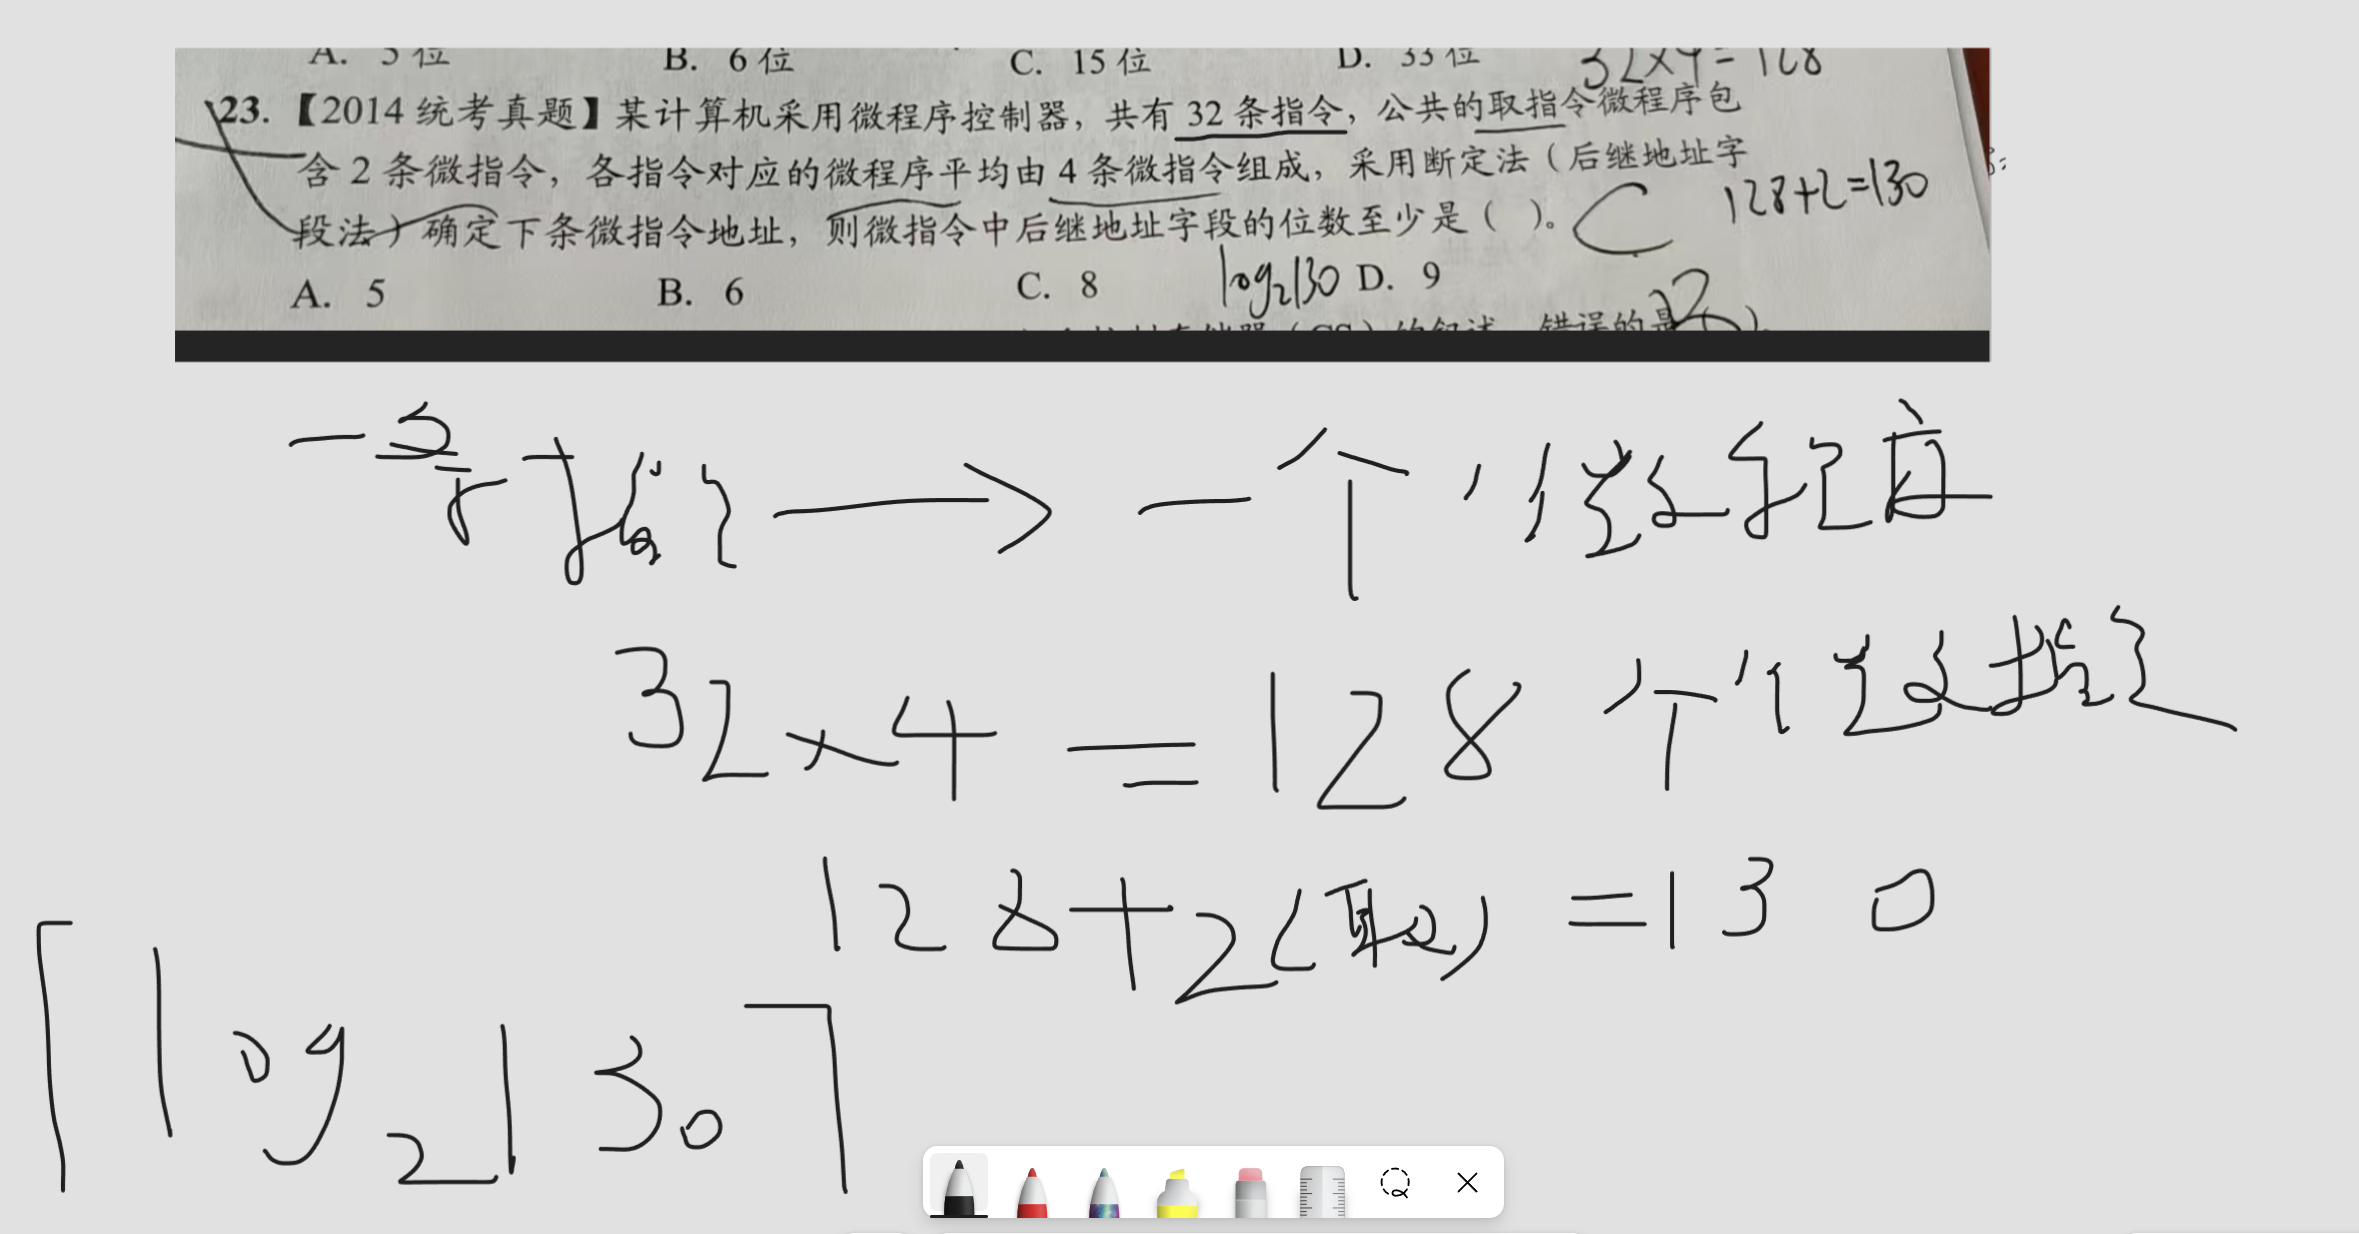 A. 5位 B. 6位 C. 15位 D. 33位 32×4=128
23. 【2014 统考真题】某计算机采用微程序控制器，共有 32 条指令，公共的取指令微程序包
含 2 条微指令，各指令对应的微程序平均由 4 条微指令组成，采用断定法（后继地址字
段法）确定下条微指令地址，则微指令中后继地址字段的位数至少是（ ）。 C 128+2=130
A. 5 B. 6 C. 8 log₂130 D. 9
错误的是
一条指令 → 一个微程序
32×4=128个微指令
128+2(取)=130
⌈log₂130⌉